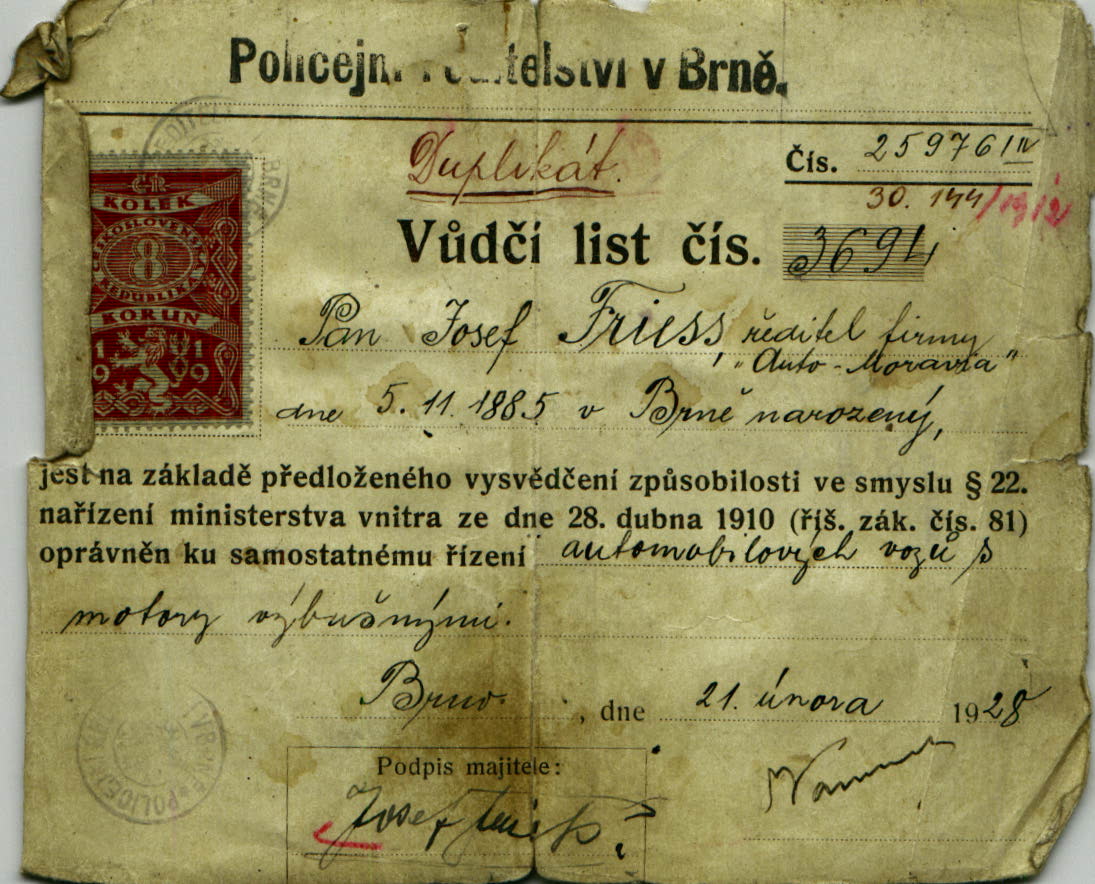 Policejní ředitelství v Brně.
Duplikát.
Čís. 259761 IV
30.144/1912
ČR
KOLEK
ČESKOSLOVENSKÁ
8
REPUBLIKA
KORUN
1919
Vůdčí list čís. 3694
Pan Josef Friess ředitel firmy
"Auto-Moravia"
dne 5. 11. 1885 v Brně narozený,
jest na základě předloženého vysvědčení způsobilosti ve smyslu § 22.
nařízení ministerstva vnitra ze dne 28. dubna 1910 (říš. zák. čís. 81)
oprávněn ku samostatnému řízení automobilových vozů s
motory výbušnými.
Brno, dne 21. února 1928
Podpis majitele:
Josef Friess